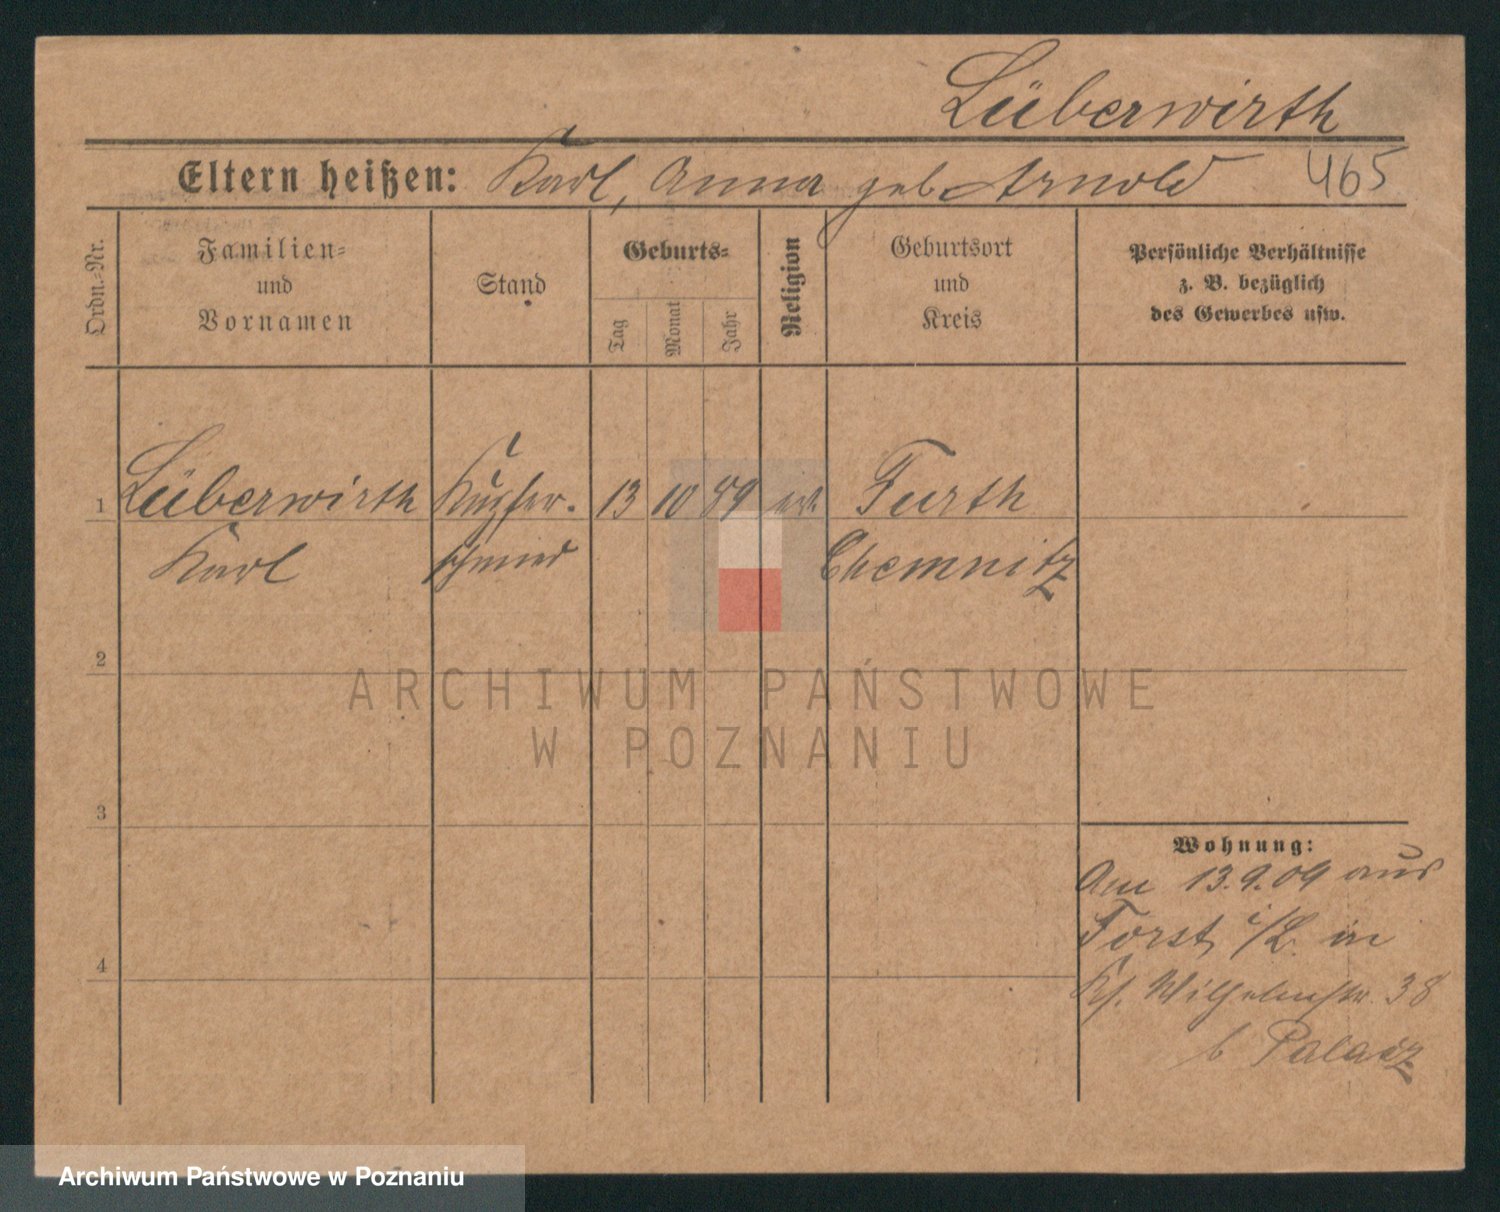 Lüberwirth
Eltern heißen: Karl, Anna geb. Arnold 465
Ordn.-Nr.
Familien-
und
Vornamen
Stand
Geburts-
Tag
Monat
Jahr
Religion
Geburtsort
und
Kreis
Persönliche Verhältnisse
z. B. bezüglich
des Gewerbes usw.
1 Lüberwirth Kupfer- 13 10 89 ev. Furth
Karl schmied Chemnitz
2
3
4
Wohnung:
Am 13.9.09 aus
Forst i/L. in
Wilhelmstr. 38
b Palacz
ARCHIWUM PAŃSTWOWE
W POZNANIU
Archiwum Państwowe w Poznaniu